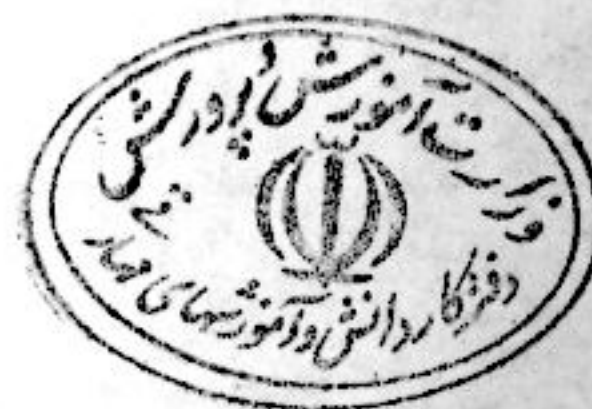 وزارت آموزش و پرورش
دفتر کار دانش و آموزشهای مهارتی